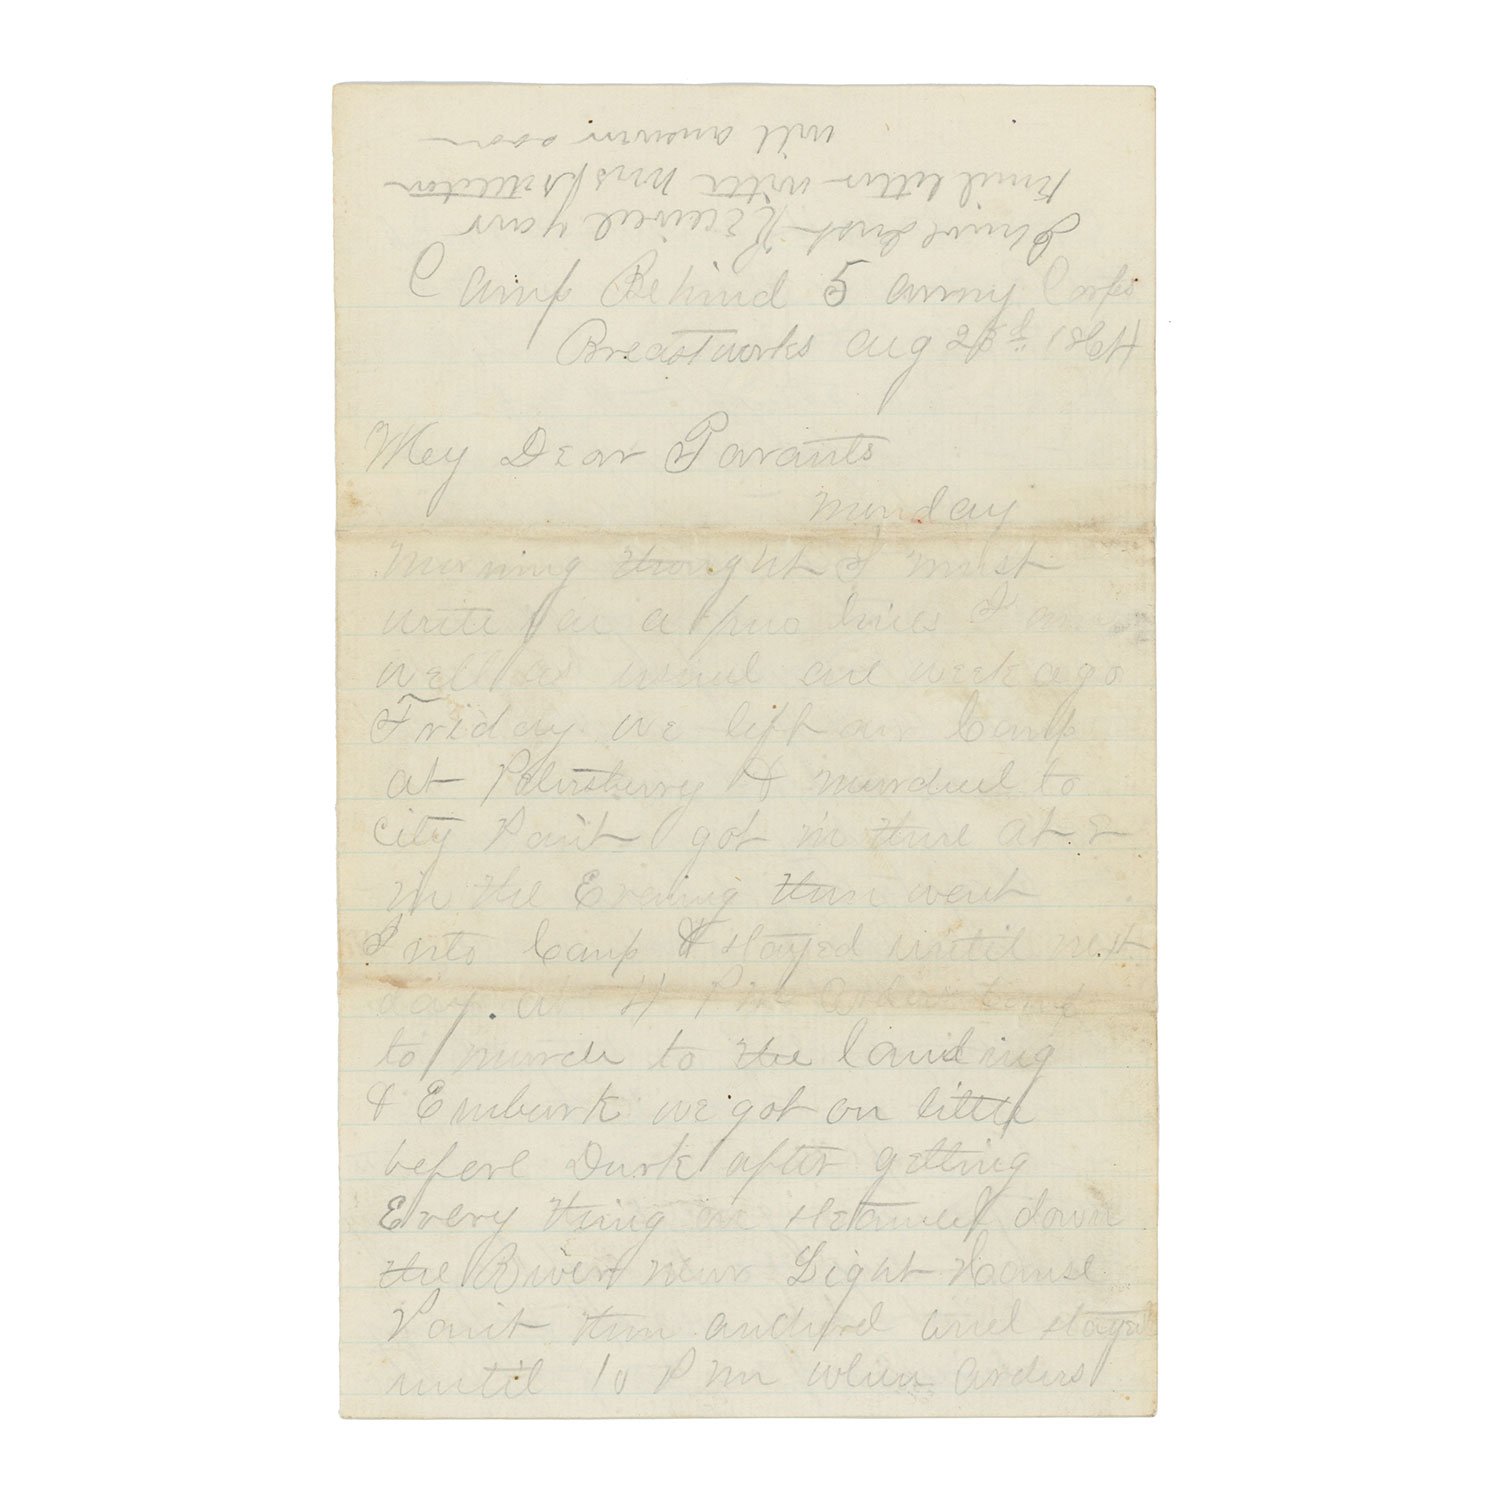 I have Just Received your
kind letter with Mrs
will answer soon
Camp Behind 5 army Corps
Breastworks Aug 23d 1864
Mey Dear Parants
Monday
Morning thought I must
write you a few lines I am
well as usual one week ago
Friday we left our Camp
at Petersburg & marched to
City Point got in there at
in the Evening then went
Into Camp & stayed until next
day at 4 P M Orders came
to march to the landing
& Embark we got on little
before Dark after getting
Every thing on steamed down
the River near Light House
Point then anchord and stayed
until 10 P M when Orders